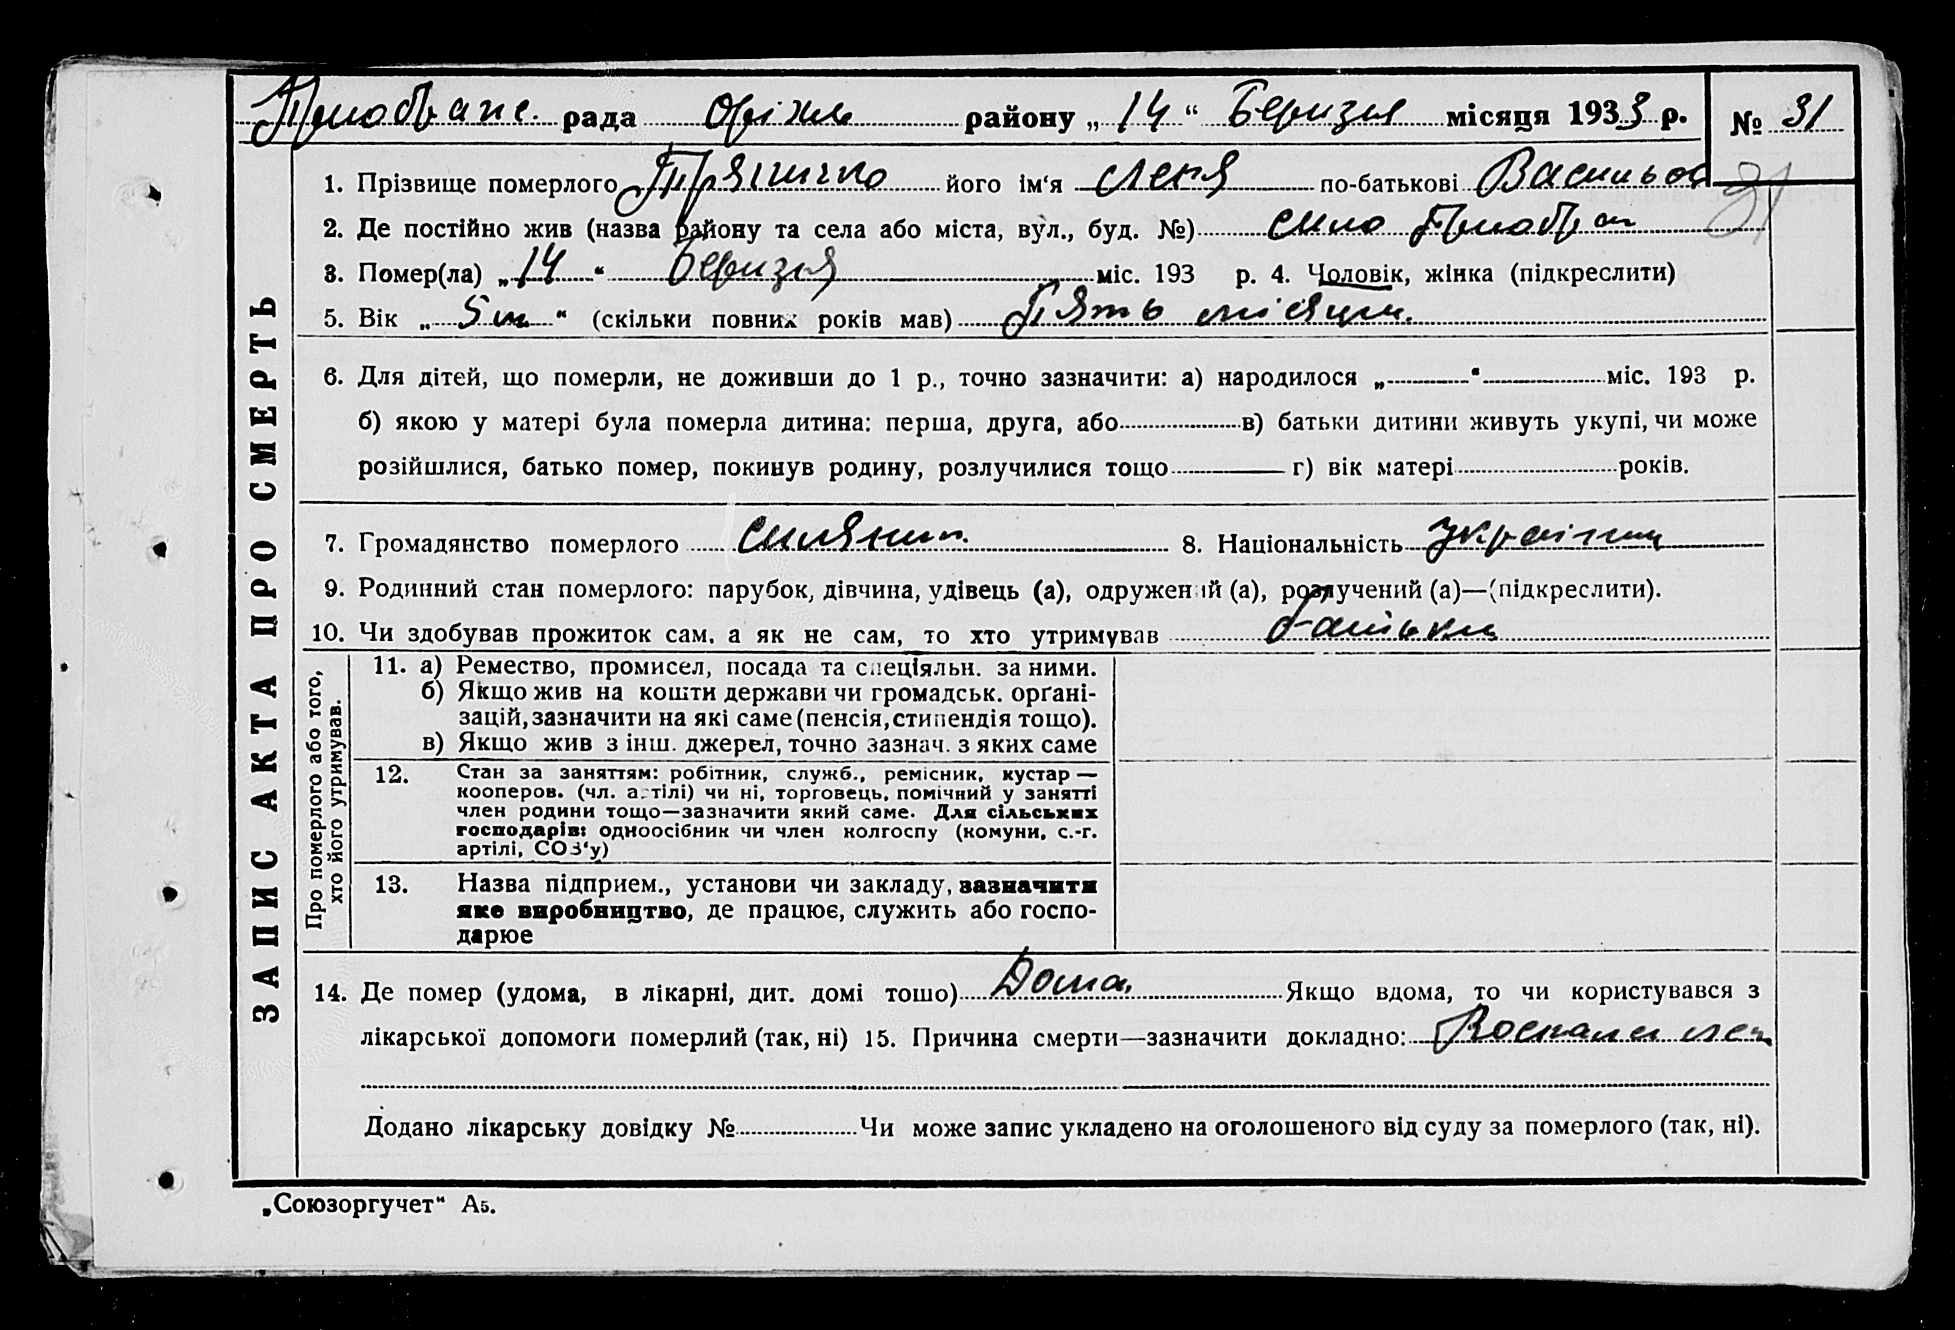 Преображе. рада Оріхів району „14“ Березня місяця 1933 р. № 31
1. Прізвище померлого його ім‘я Леня по-батькові Васильов
31
2. Де постійно жив (назва району та села або міста, вул., буд. №) село Преображ
3. Помер(ла) „14“ Березня міс. 193 р. 4. Чоловік, жінка (підкреслити)
5. Вік „5 м“ (скільки повних років мав) Пять місяців.
6. Для дітей, що померли, не доживши до 1 р., точно зазначити: а) народилося „ “ міс. 193 р.
б) якою у матері була померла дитина: перша, друга, або в) батьки дитини живуть укупі, чи може
розійшлися, батько помер, покинув родину, розлучилися тощо г) вік матері років.
7. Громадянство померлого селянин. 8. Національність українец
9. Родинний стан померлого: парубок, дівчина, удівець (а), одружений (а), розлучений (а)—(підкреслити).
10. Чи здобував прожиток сам, а як не сам, то хто утримував батьки
ЗАПИС АКТА ПРО СМЕРТЬ
Про померлого або того,
хто його утримував.
11. а) Ремество, промисел, посада та спеціяльн. за ними.
б) Якщо жив на кошти держави чи громадськ. орґані-
зацій, зазначити на які саме (пенсія, стипендія тощо).
в) Якщо жив з інш. джерел, точно зазнач. з яких саме
12. Стан за заняттям: робітник, служб., ремісник, кустар —
кооперов. (чл. артілі) чи ні, торговець, помічний у занятті
член родини тощо—зазначити який саме. Для сільських
господарів: одноосібник чи член колгоспу (комуни, с.-г.
артілі, СОЗ‘у)
13. Назва підприєм., установи чи закладу, зазначити
яке виробництво, де працює, служить або госпо-
дарює
14. Де помер (удома, в лікарні, дит. домі тощо) Дома. Якщо вдома, то чи користувався з
лікарської допомоги померлий (так, ні) 15. Причина смерти—зазначити докладно: Воспалел лег
Додано лікарську довідку № Чи може запис укладено на оголошеного від суду за померлого (так, ні).
„Союзоргучет“ А5.